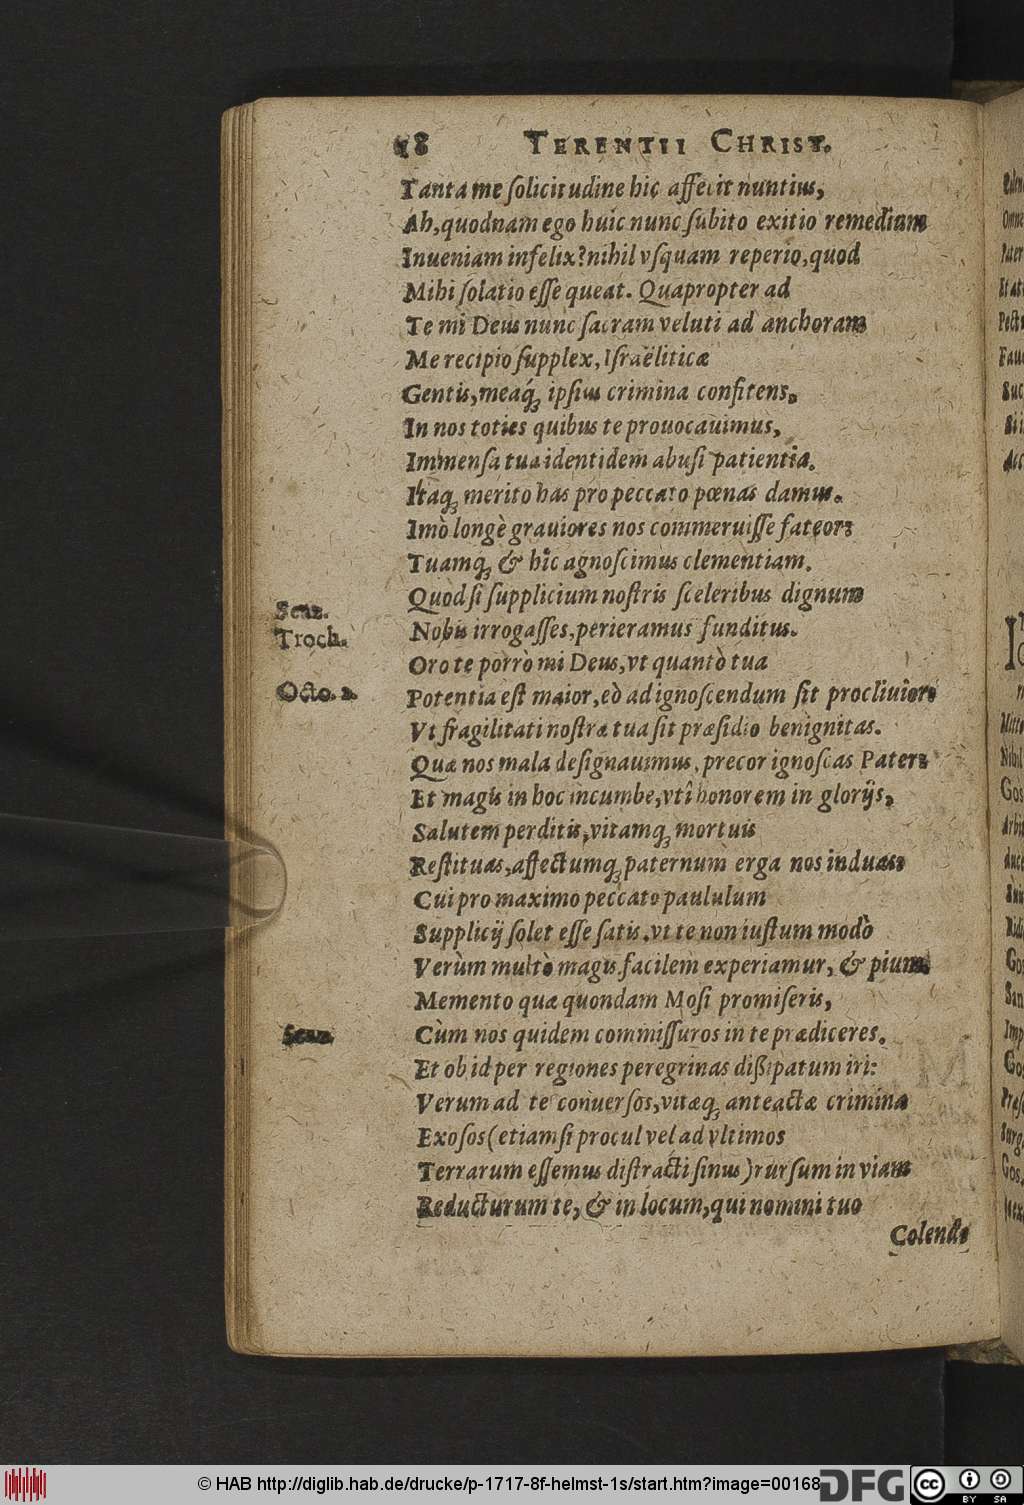 18 TERENTII CHRIST.
Tanta me ſolicitudine hic affecit nuntius,
Ah, quodnam ego huic nunc ſubito exitio remedium
Inueniam infelix? nihil vſquam reperio, quod
Mihi ſolatio eſſe queat. Quapropter ad
Te mi Deus nunc ſacram veluti ad anchoram
Me recipio ſupplex, Iſraëliticæ
Gentis, meaq́ꝫ ipſius crimina confitens,
In nos toties quibus te prouocauimus,
Immenſa tua identidem abuſi patientia.
Itaqꝫ merito has pro peccato pœnas damus.
Imò longè grauiores nos commeruiſſe fateor:
Tuamqꝫ & hîc agnoſcimus clementiam.
Quòd ſi ſupplicium noſtris ſceleribus dignum
Senar.
Nobis irrogaſſes, perieramus funditus.
Troch.
Oro te porrò mi Deus, vt quantò tua
Octo. 2.
Potentia eſt maior, eò ad ignoſcendum ſit procliuior:
Vt fragilitati noſtræ tua ſit præſidio benignitas.
Quæ nos mala deſignauimus, precor ignoſcas Pater:
Et magis in hoc incumbe, vtî honorem in glorijs,
Salutem perditis, vitamqꝫ mortuis
Reſtituas, affectumqꝫ paternum erga nos induas:
Cui pro maximo peccato paululum
Supplicij ſolet eſſe ſatis. vt te non iuſtum modò
Verùm multò magis facilem experiamur, & pium.
Memento quæ quondam Moſi promiſeris,
Cùm nos quidem commiſſuros in te prædiceres.
Et ob id per regiones peregrinas dißipatum iri:
Verum ad te conuerſos, vitæqꝫ anteactæ crimina
Exoſos (etiamſi procul vel ad vltimos
Terrarum eſſemus diſtracti ſinus) rurſum in viam
Reducturum te, & in locum, qui nomini tuo
Colendo
© HAB http://diglib.hab.de/drucke/p-1717-8f-helmst-1s/start.htm?image=00168
DFG
cc BY SA